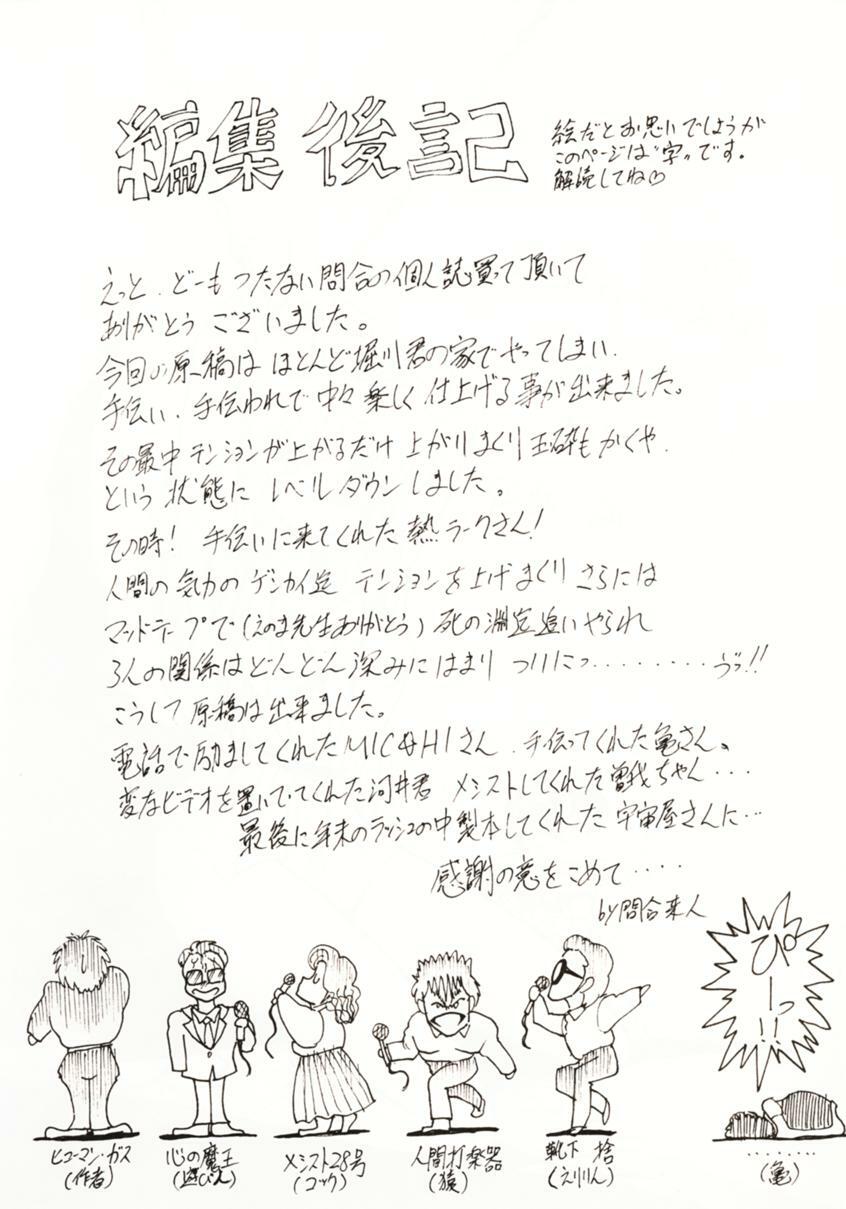 編集後記
絵だとお思いでしょうが
このページは〝字〟です。
解読してね♡
えっと、どーもつたない問合の個人誌買って頂いて
ありがとうございました。
今回の原稿はほとんど堀川君の家でやってしまい、
手伝い、手伝われで中々楽しく仕上げる事が出来ました。
その最中テンションが上がるだけ上がりまくり玉砕もかくや、
という状態にレベルダウンしました。
その時! 手伝いに来てくれた熱ラークさん!
人間の気力のゲンカイ迄テンションを上げまくりさらには
マッドテープで(えのま先生ありがとう)死の淵迄追いやられ
3人の関係はどんどん深みにはまりついにっ‥‥‥‥‥うっ!!
こうして原稿は出来ました。
電話で励ましてくれたMICHIさん、手伝ってくれた亀さん、
変なビデオを置いてってくれた河井君 メシストしてくれた曽我ちゃん‥‥
最後に年末のラッシュの中製本してくれた宇宙屋さんに‥‥
感謝の意をこめて‥‥‥
by問合来人
ぴーっ!!
ヒューマン・ガス
(作者)
心の魔王
(遊びん)
メシスト28号
(コック)
人間打楽器
(猿)
靴下 捨
(えりりん)
‥‥‥‥
(亀)